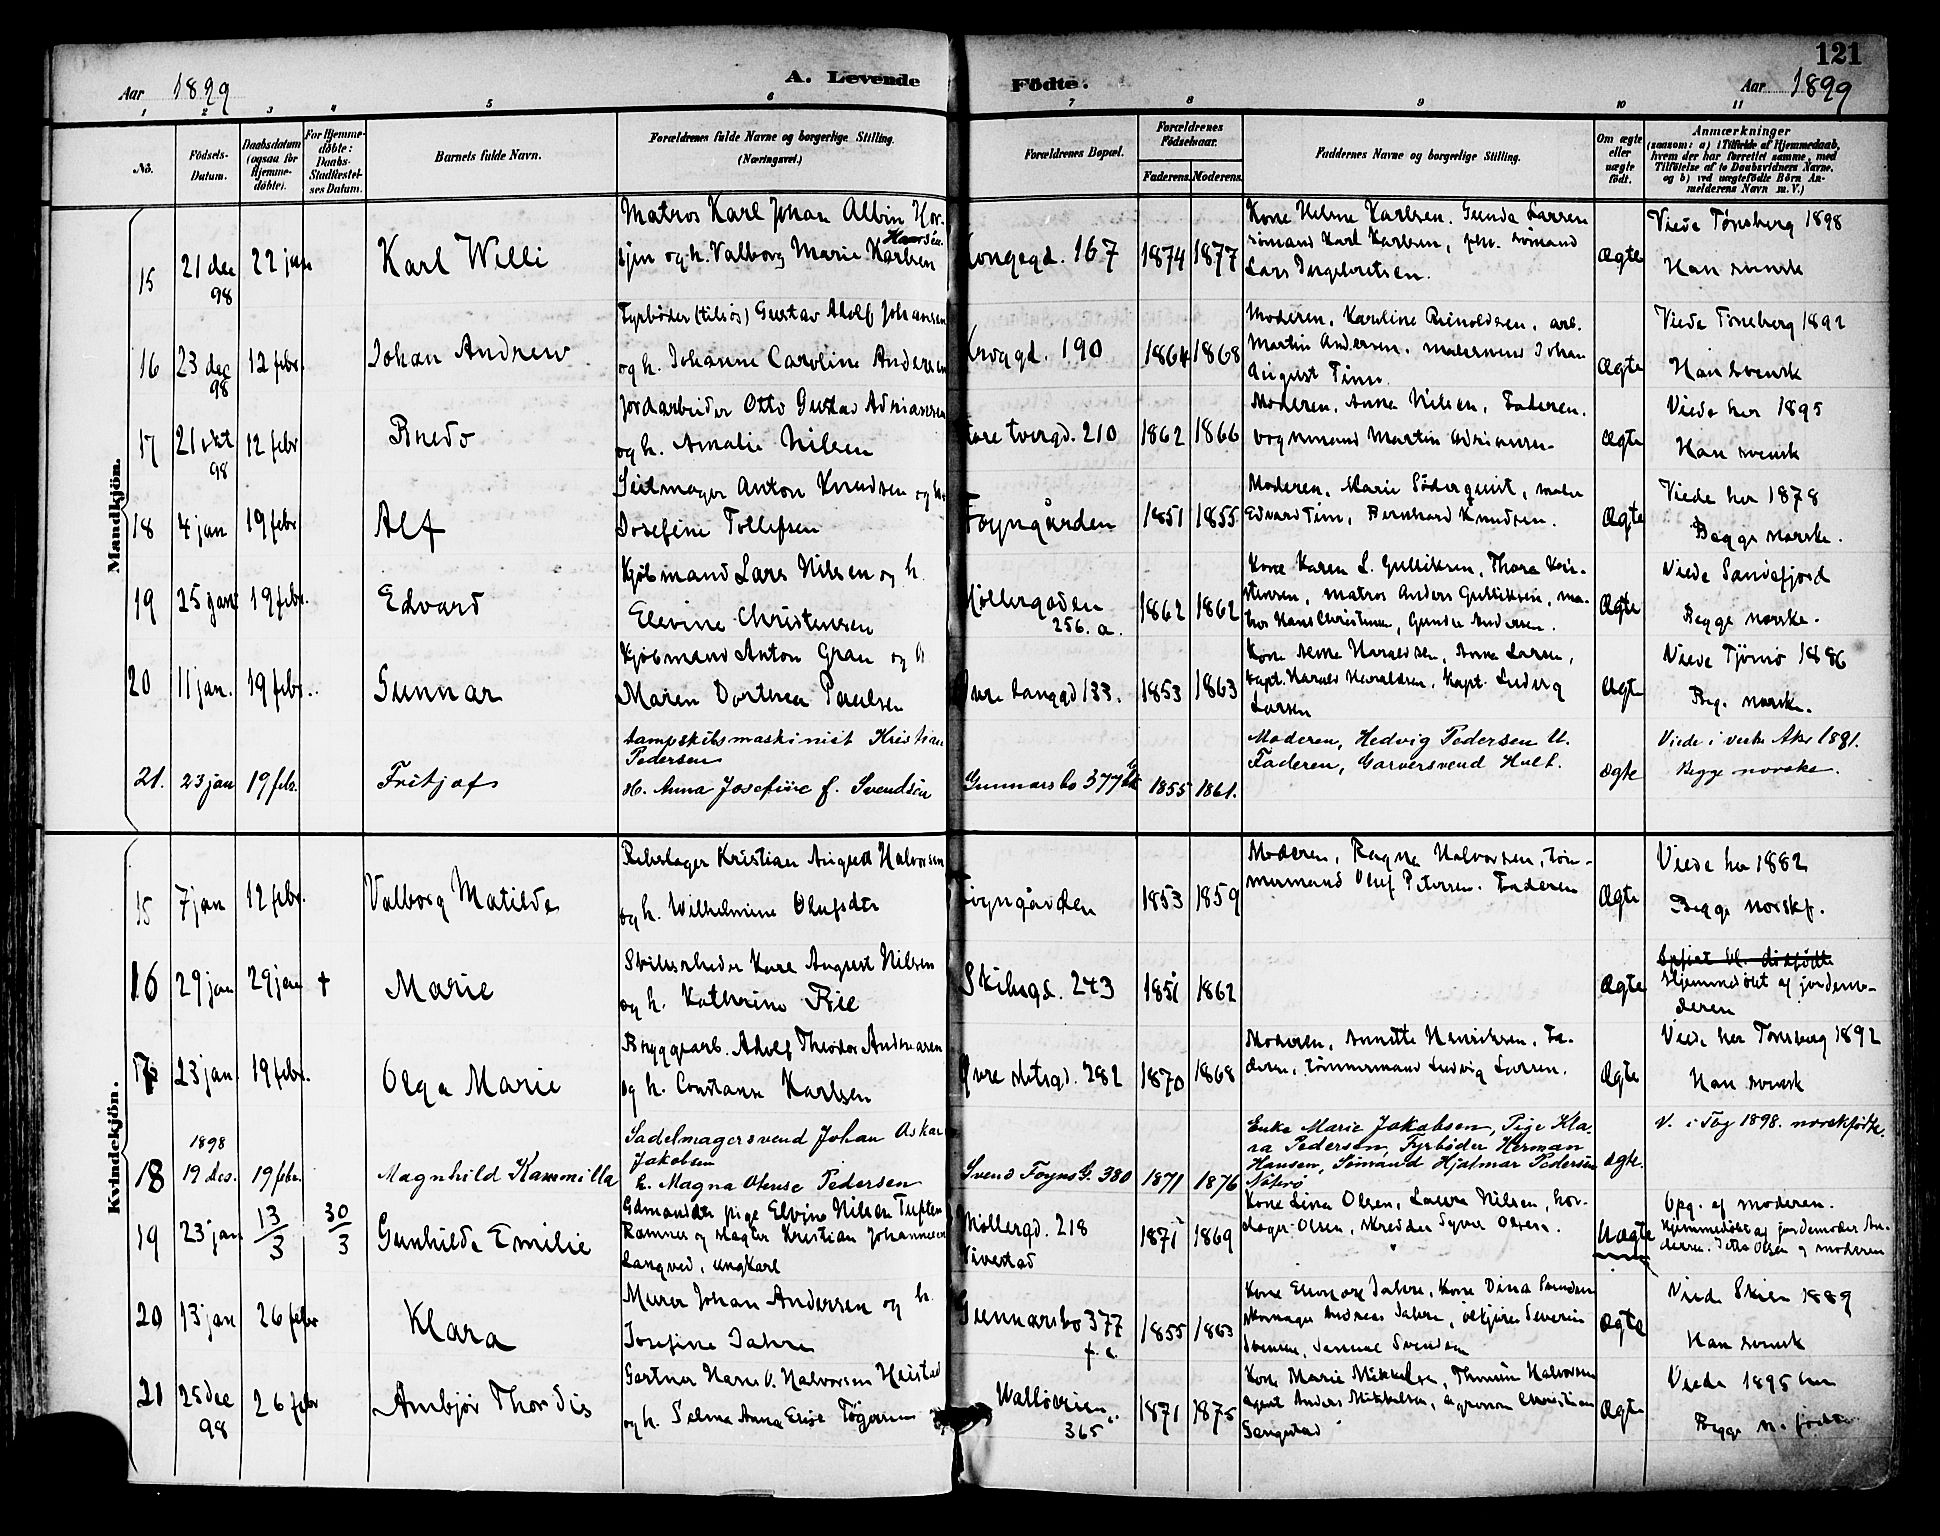 121
Aar 1899
A. Levende
Födte.
Aar 1899
1 2 3 4 5 6 7 8 9 10 11
No.
Födsels-Datum.
Daabsdatum (ogsaa for Hjemme-döbte).
For Hjemme-döbte: Daabs-Stadfæstel-ses Datum.
Barnets fulde Navn.
Forældrenes fulde Navne og borgerlige Stilling.
(Næringsvei.)
Forældrenes Bopæl.
Forældrenes Födselsaar.
Faderens. Moderens.
Faddernes Navne og borgerlige Stilling.
Om ægte eller uægte födt.
Anmærkninger
(saasom: a) i Tilfælde af Hjemmedaab, hvem der har forrettet samme, med Tilföielse af to Daabsvidners Navne, og b) ved uægtefödte Börn An-melderens Navn m. V.)
Mandkjön.
15
21 dec 98
22 jan
Karl Willi
Matros Karl Johan Albin
og h. Valborg Marie Karlsen
Kongegd. 167
1874 1877
Kone Helene Karlsen. Gunda Larsen
sømand Karl Karlsen, sømand
Lars Ingebretsen.
Ægte
Viede Tønsberg 1898
Han svensk
16
23 dec 98
12 febr.
Johan Andrew
Fyrbøder (tilsjøs) Gustav Adolf Johansen
og h. Johanne Caroline Andersen
190
1864 1868
Moderen, Karoline Rinoldsen, arb.
Martin Andersen, Johan
August
Ægte
Viede Tønsberg 1892
Han svensk
17
21 okt 98
12 febr
Jordarbeider Otto Gustav Adriansen
og h. Amalie Nilsen
Store tvergd. 210
1862 1866
Moderen, Anna Nilsen, Faderen,
vognmand Martin Adriansen
Ægte
Viede her 1895
Han svensk
18
4 jan
19 febr
Alf
Seilmager Anton Knudsen og h.
Josefine Tollefsen
Foyngården
1851 1855
Moderen, Marie Söderquist,
Edvard Bernhard Knudsen.
Ægte
Viede her 1878
Begge norske.
19
25 jan
19 febr.
Edvard
Kjøbmand Lars Nilsen og h.
Elevine Christensen
Møllergaden
256. a.
1862 1862
Kone Karen L. Gulliksen, Thora Kris-
tensen, matros Anders Gulliksen, ma-
tros Hans Christensen, Andersen.
Ægte
Viede Sandefjord
Begge norske.
20
11 jan.
19 febr.
Gunnar
Kjøbmand Anton Gran og h
Maren Dorthea Paulsen
Øvre Langgd 133.
1853 1863
Kone Haraldsen, Anna Larsen,
kapt. Harald Haraldsen, Kapt. Ludvig
Larsen
Ægte
Viede Tjömö 1886
Beg. norske.
21.
23 jan
19 febr.
Fritjof
Dampskibsmaskinist Kristian
Pedersen
H. Anna Josefine f. Svendsen
Gunnarsbo 377
1855 1861.
Moderen, Hedvig Pedersen U.
Faderen, Garversvend Holt.
ægte
Viede i vestre Aker 1881.
Begge norske.
Kvindekjön.
15
7 jan
12 febr.
Valborg Matilde
Rebslager Kristian August Halvorsen
og h. Wilhelmine Olufsdtr
Foyngården
1853 1859
Moderen, Ragna Halvorsen, tøm-
mermand Oluf Petersen. Faderen
Ægte
Viede her 1882
Begge norske.
16
29 jan
29 jan
+
Marie
Skibsarbeider Karl August Nilsen
og h. Kathrine
Skibsgd. 243
1851 1862
Ægte
Hjemmedøbt af jordemo-
deren
17
23 jan.
19 febr.
Olga Marie
Bryggearb. Adolf Theodor Andreasen
og h. Constanse Karlsen
Øvre 282
1870 1868
Moderen, Annette Henriksen, Fa-
deren, tømmermand Ludvig Larsen.
Ægte
Viede her Tønsberg 1892
Han svensk
18
1898
19 des.
19 febr.
Magnhild Kammilla
Sadelmagersvend Johan Oskar
Jakobsen
h. Magna Otense Pedersen
Svend Foyns G. 380
1871 1876
Enke Marie Jakobsen, Pige Kla-
ra Pedersen, Fyrbøder Herman
Hansen, Sømand Hjalmar Pedersen
Nøterø
ægte.
V. i Tbg 1898. norskfødte.
19
23 jan
13/3
30/3
Gunhilda Emilie
pige Elvine Nilsen
Ramnes og slagter Kristian Johannesen
Langved, ungkarl
Møllergd. 218
Vivestad
1871 1869
Kone Lina Olsen, Laura Nilsen,
Olsen, skrædder Syver Olsen.
Uægte
Opg. af moderen.
Hjemmedøbt af jordemoder An-
dersen. Olsen og moderen
20
13 jan
26 febr
Klara
Murer Johan Andersen og h.
Josefine Jahre
Gunnarsbo 377
1855 1863
Kone Eleonore Jahre, Kone Dina
skomager Andreas Jahre, Severin
Svensen, Svendsen
Ægte
Viede Skien 1889
Han svensk
21
25 dec 98
26 febr
Ambjør Thordis
Gartner Hans O. Halvorsen
og h. Selma Anna Elise
Valløveien
365
1871 1875
Kone Marie Mikkelsen, Halvorsen
agent Anders Mikkelsen, Christian
Ægte
Viede 1895 her
Begge n. fødte